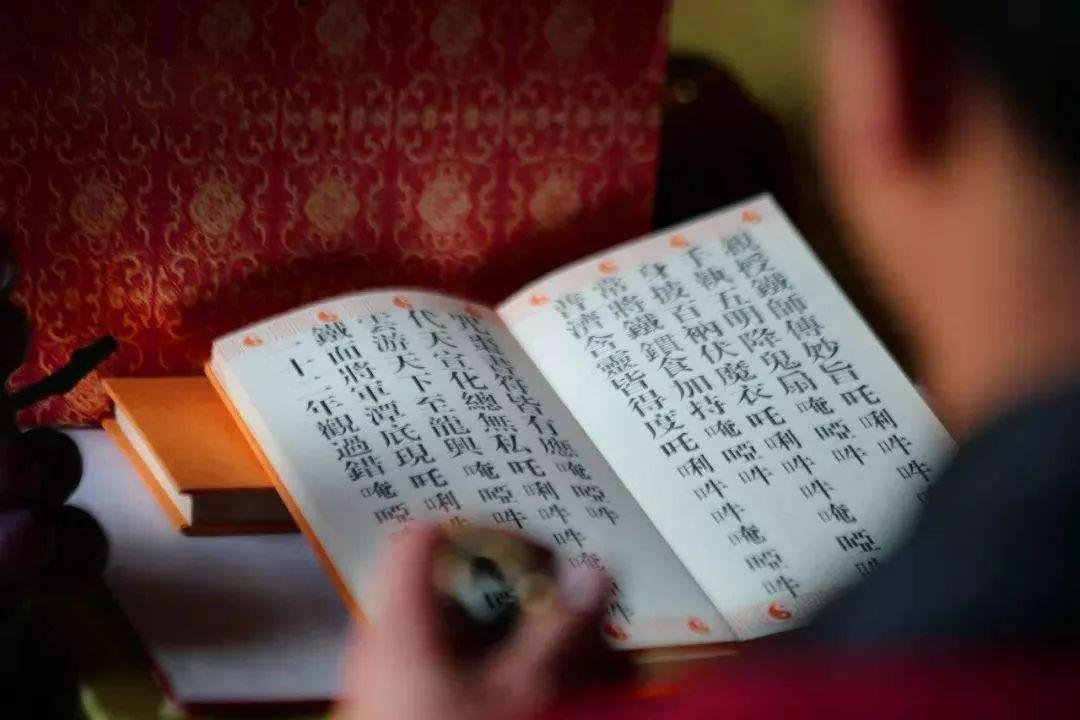 親授鐵師傳妙旨吒唎吽吽
手執五明降鬼扇唵啞吽
身披百衲伏魔衣吒唎吽吽唵啞吽
常將鐵鎖食加持唵啞吽
普濟含靈皆得度吒唎吽吽唵啞吽
咒書符皆有應唵啞吽
代天宣化總無私吒唎吽吽唵吽
游天下至龍興唵啞吽
鐵血將軍潭底現吒唎
一十二年觀過錯唵啞